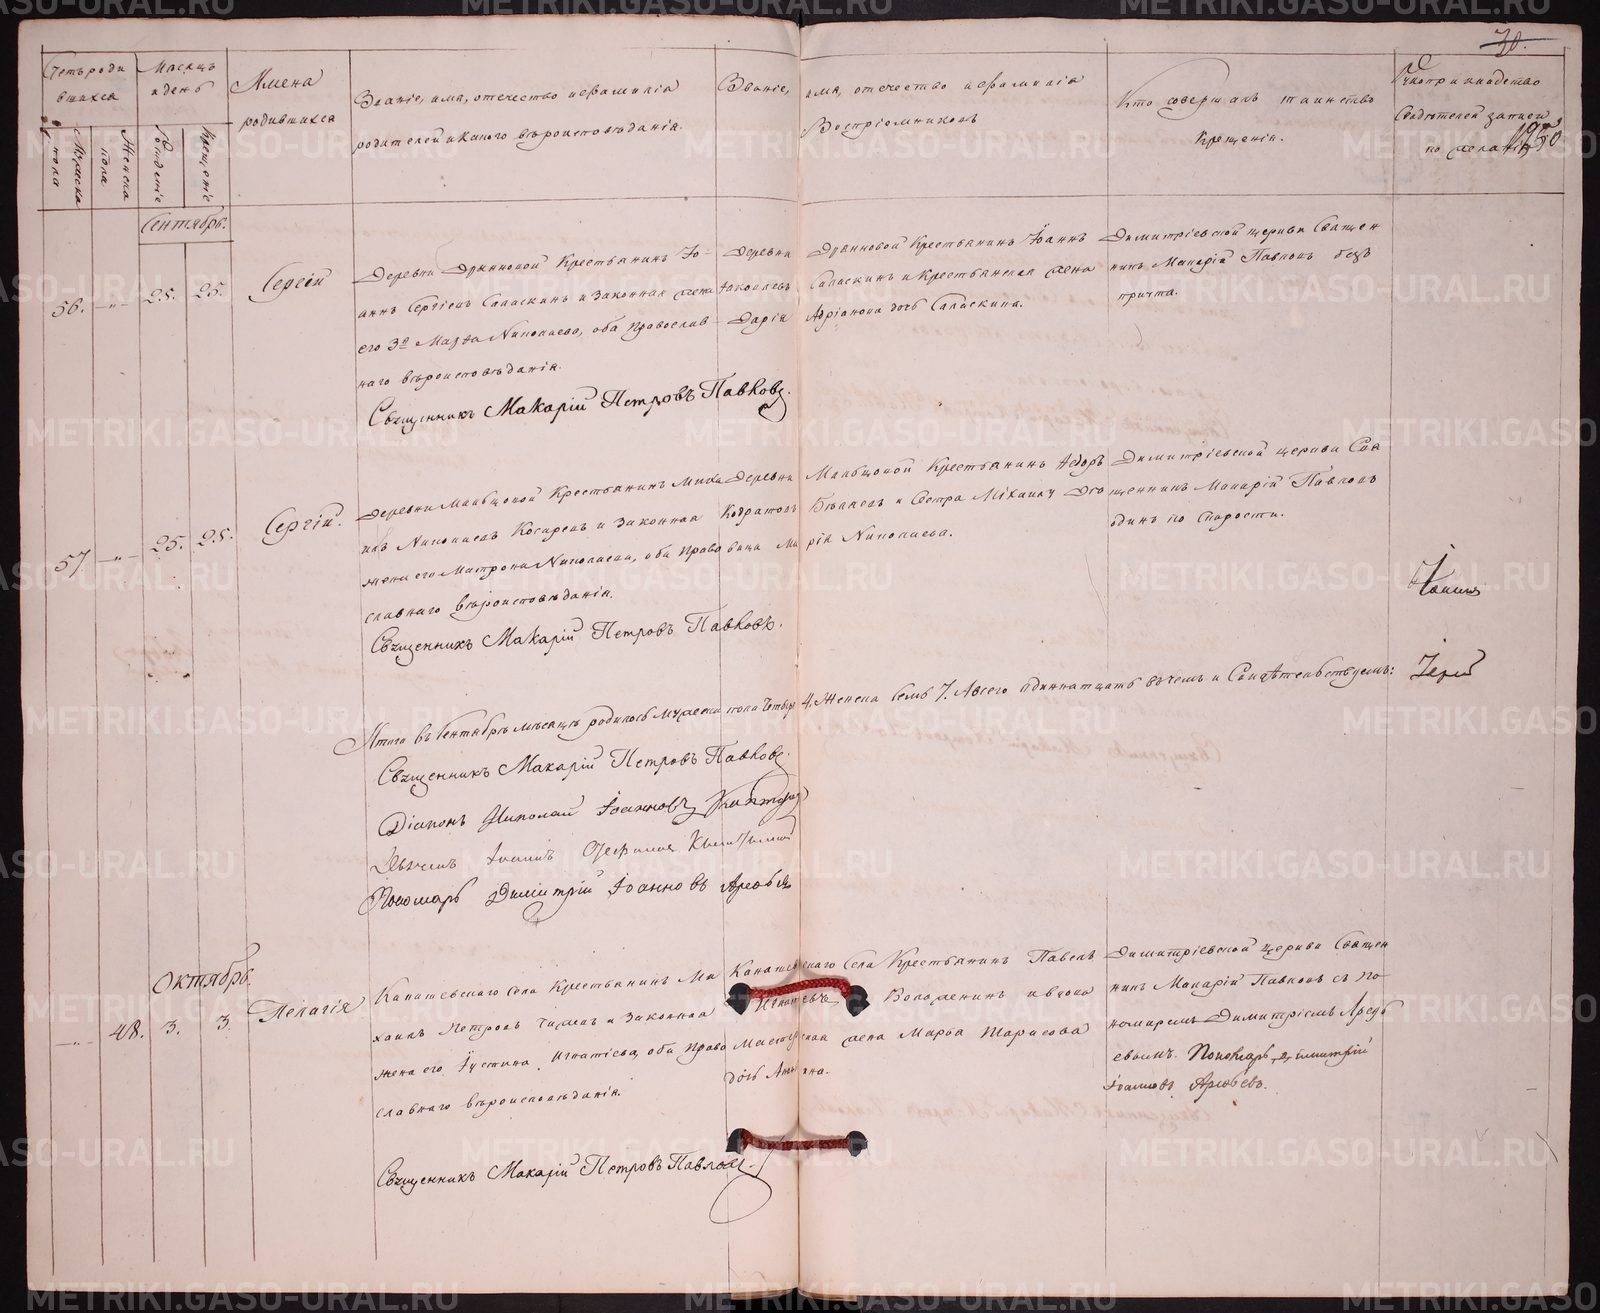 30.
1950
Счетъ роди
вшихся
Мужеска
пола
Женска
пола
Мѣсяцъ
и день
Рожденіе
Крещеніе
Имена
родившихся
Званіе, имя, отечество и фамилія
родителей и какого вѣроисповѣданія.
Званіе, имя, отечество и фамилія
Воспріемниковъ
Кто совершалъ таинство
Крещенія.
Рукоприкладство
Свидѣтелей записи
по желанію
Сентябрь.
56. —„— 25. 25. Сергій
Деревни Крестьянинъ Іо-
аннъ Сергіевъ Саласкинъ и Законная жена
его Марѳа Николаева, оба Православ-
наго вѣроисповѣданія.
Священникъ Макарій Петровъ Павловъ.
Деревни Крестьянинъ Іоаннъ
Яковлевъ Саласкинъ и Крестьянская жена
Дарія Адріанова дочь Саласкина.
Димитріевской церкви Священ
никъ Макарій Павловъ безъ
причта.
57. —„— 25. 25. Сергій.
Деревни Мальцовой Крестьянинъ Миха
илъ Николаевъ Косаревъ и Законная
жена его Матрона Николаева, оба право
славнаго вѣроисповѣданія.
Священникъ Макарій Петровъ Павловъ.
Деревни Мальцовой Крестьянинъ Ѳедоръ
Кодратовъ и Сестра Михаилу
вица Марія Николаева.
Димитріевской церкви Свя
щенникъ Макарій Павловъ
одинъ по старости.
Итого въ Сентябрѣ мѣсяцѣ родилось мужеска пола Четыре 4. Женска семь 7. А всего одиннатцать въ чемъ и Свидѣтельствуемъ:
Іоаннъ
Іерей
Священникъ Макарій Петровъ Павловъ.
Діаконъ Николай Іоанновъ
Іоаннъ
Пономарь Димитрій Іоанновъ Арефьевъ
Октябрь.
—„— 48. 3. 3. Пелагія
Канашевскаго села Крестьянинъ Ми
хаилъ Петровъ и Законная
жена его Іустина Игнатіева, оба право
славнаго вѣроисповѣданія.
Священникъ Макарій Петровъ Павловъ.
Канашевскаго Села Крестьянинъ Павелъ
Игнатьевъ и
Мастерская жена Марѳа Тарасова
дочь
Димитріевской церкви Священ
никъ Макарій Павловъ съ по
номаремъ Димитріемъ Арефь
евымъ. Пономарь Димитрій
Іоанновъ Арефьевъ.
METRIKI.GASO-URAL.RU